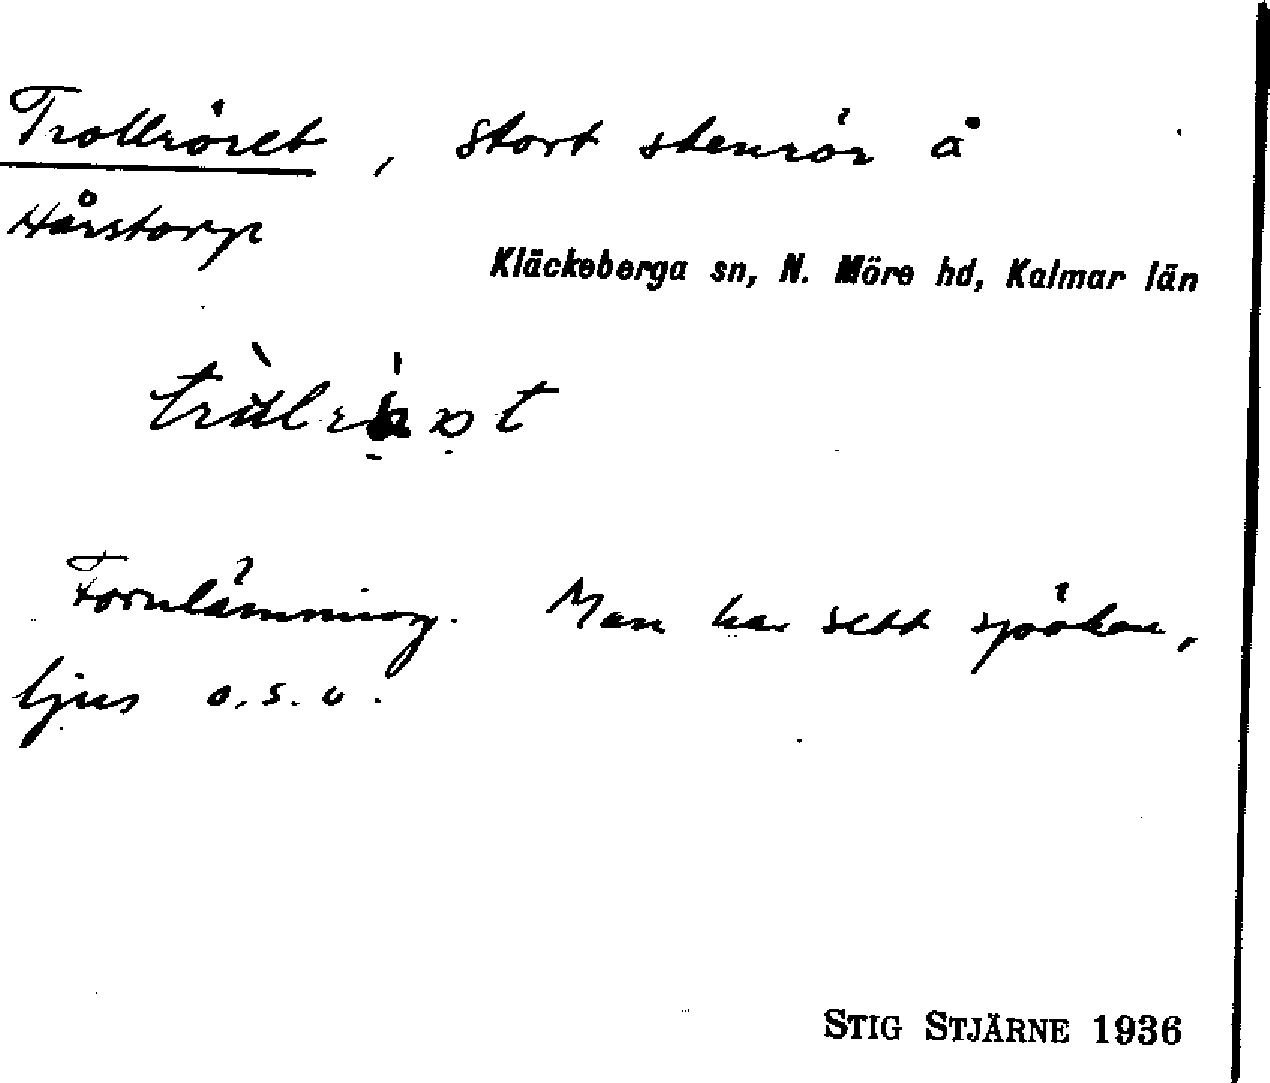 Trollröret, stort stenrör å
Hårstorp
Kläckeberga sn, N. Möre hd, Kalmar län
Fornlämning. Man har sett spöken,
ljus o.s.v.
STIG STJÄRNE 1936